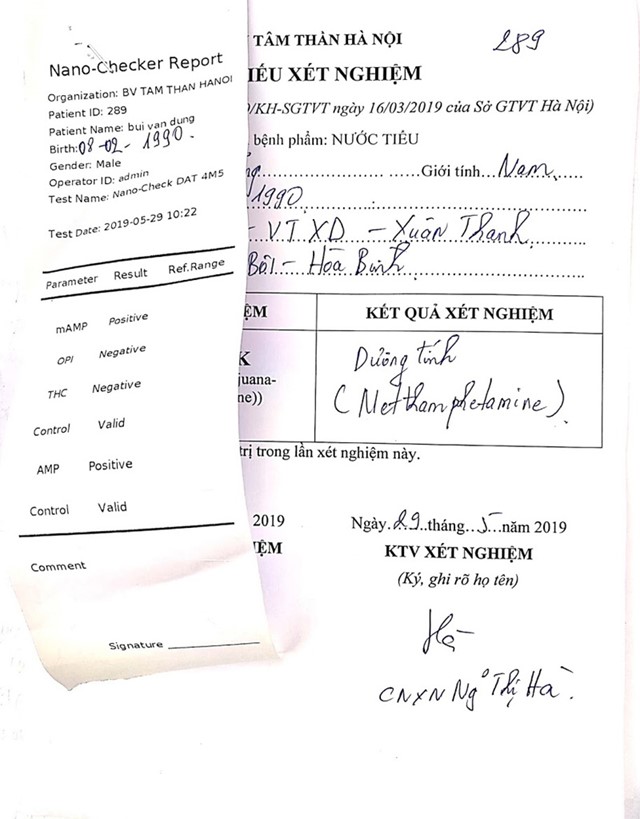 Nano-Checker Report
Organization: BV TAM THAN HANOI
Patient ID: 289
Patient Name: bui van dung
Birth: 08-02-1990.
Gender: Male
Operator ID: admin
Test Name: Nano-Check DAT 4M5
Test Date: 2019-05-29 10:22
Parameter Result Ref.Range
mAMP Positive
OPI Negative
THC Negative
Control Valid
AMP Positive
Control Valid
Comment
Signature
TÂM THẦN HÀ NỘI
289
IẾU XÉT NGHIỆM
/KH-SGTVT ngày 16/03/2019 của Sở GTVT Hà Nội)
bệnh phẩm: NƯỚC TIỂU
Giới tính Nam
1990
- VT XD - Xuân Thanh
Bôi - Hòa Bình
ỆM KẾT QUẢ XÉT NGHIỆM
K
juana-
ne))
Dương tính
(Methamphetamine).
trị trong lần xét nghiệm này.
2019
Ngày 29 tháng 5 năm 2019
IỆM
KTV XÉT NGHIỆM
(Ký, ghi rõ họ tên)
Hà
CNXN Ngô Thị Hà.